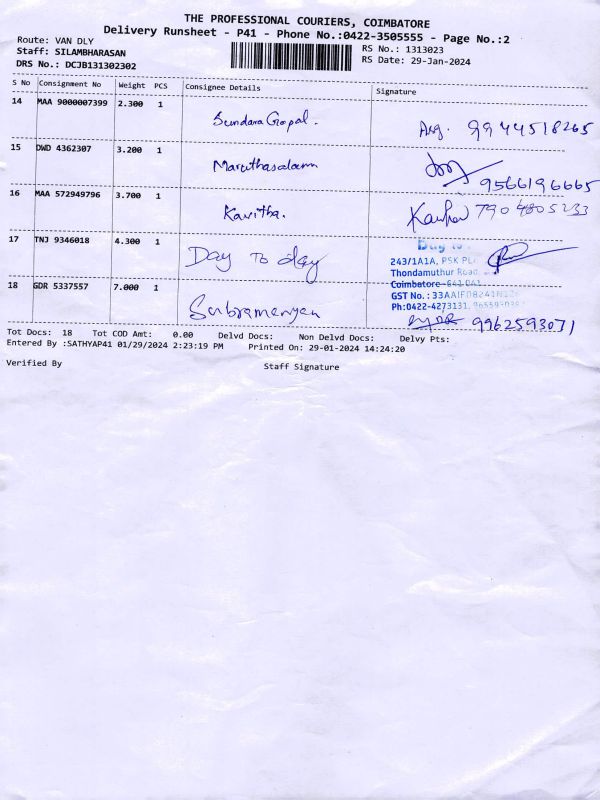 THE PROFESSIONAL COURIERS, COIMBATORE
Delivery Runsheet - P41 - Phone No.:0422-3505555 - Page No.:2
Route: VAN DLY
Staff: SILAMBHARASAN
DRS No.: DCJB131302302
RS No.: 1313023
RS Date: 29-Jan-2024
S No Consignment No Weight PCS Consignee Details Signature
14 MAA 9000007399 2.300 1 Sundara Gopal. 9944518265
15 DWD 4362307 3.200 1 Maruthasalam 9566196665
16 MAA 572949796 3.700 1 Kavitha. 7904805233
17 TNJ 9346018 4.300 1 Day To day
243/1A1A, PSK
Thondamuthur Road,
Coimbatore-641 041
GST No. :
Ph:0422-4273131,
18 GDR 5337557 7.000 1 Subramaniyan 9962593071
Tot Docs: 18 Tot COD Amt: 0.00 Delvd Docs: Non Delvd Docs: Delvy Pts:
Entered By :SATHYAP41 01/29/2024 2:23:19 PM Printed On: 29-01-2024 14:24:20
Verified By Staff Signature